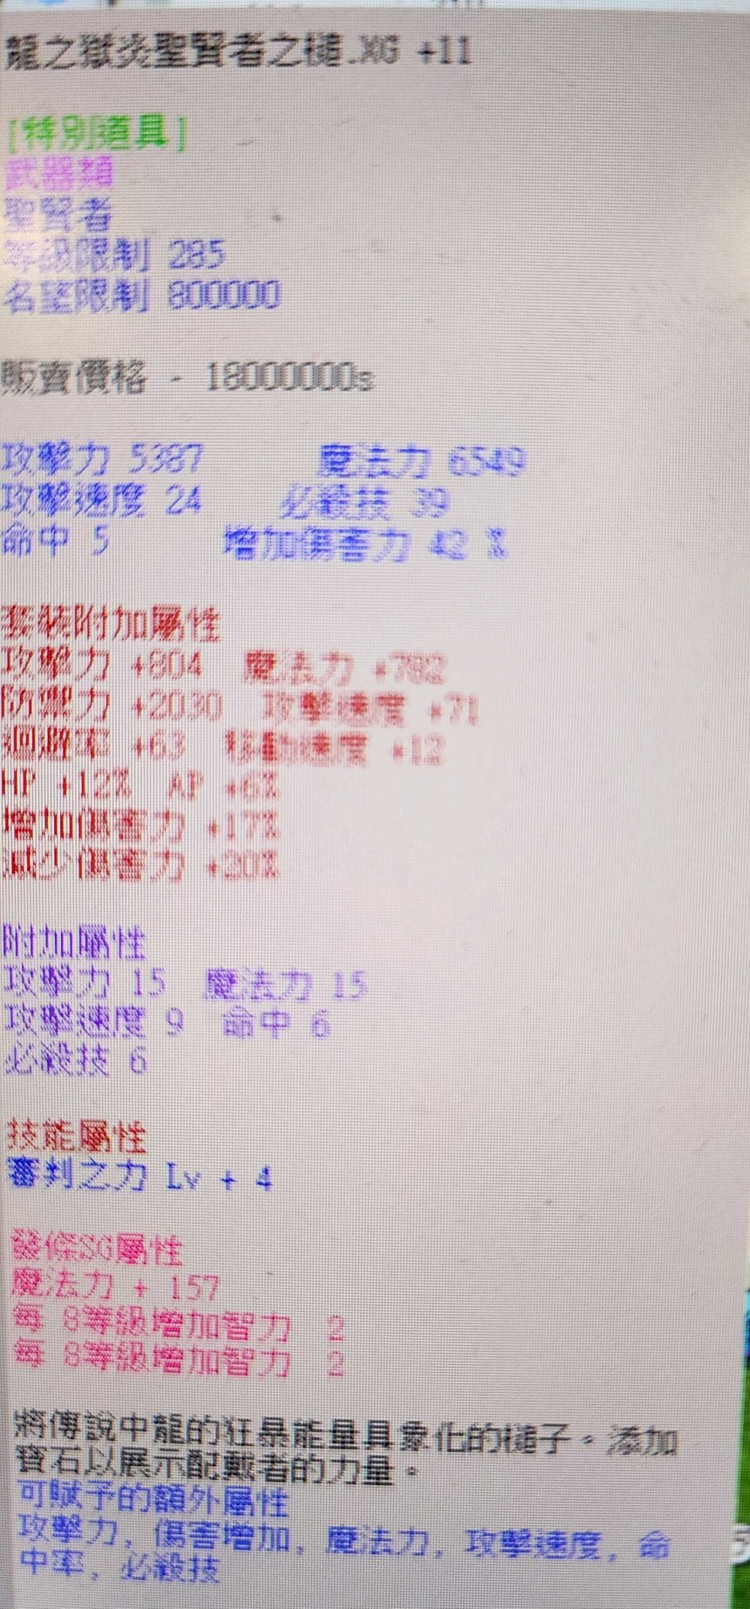 龍之獄炎聖賢者之槌.XG +11
[特別道具]
武器類
聖賢者
等級限制 285
名望限制 800000
販賣價格 - 18000000s
攻擊力 5387 魔法力 6549
攻擊速度 24 必殺技 39
命中 5 增加傷害力 42 %
套裝附加屬性
攻擊力 +804 魔法力 +782
防禦力 +2030 攻擊速度 +71
迴避率 +63 移動速度 +12
HP +12% AP +6%
增加傷害力 +17%
減少傷害力 +20%
附加屬性
攻擊力 15 魔法力 15
攻擊速度 9 命中 6
必殺技 6
技能屬性
審判之力 Lv + 4
發條SG屬性
魔法力 + 157
每 8等級增加智力 2
每 8等級增加智力 2
將傳說中龍的狂暴能量具象化的槌子。添加
寶石以展示配戴者的力量。
可賦予的額外屬性
攻擊力, 傷害增加, 魔法力, 攻擊速度, 命
中率, 必殺技